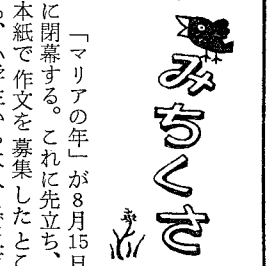 みちくさ
「マリアの年」が8月15日
に閉幕する。これに先立ち、
本紙で作文を募集したとこ